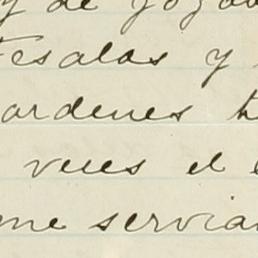 y de goza
Fesalas y
ardenes t
veces el
me servia